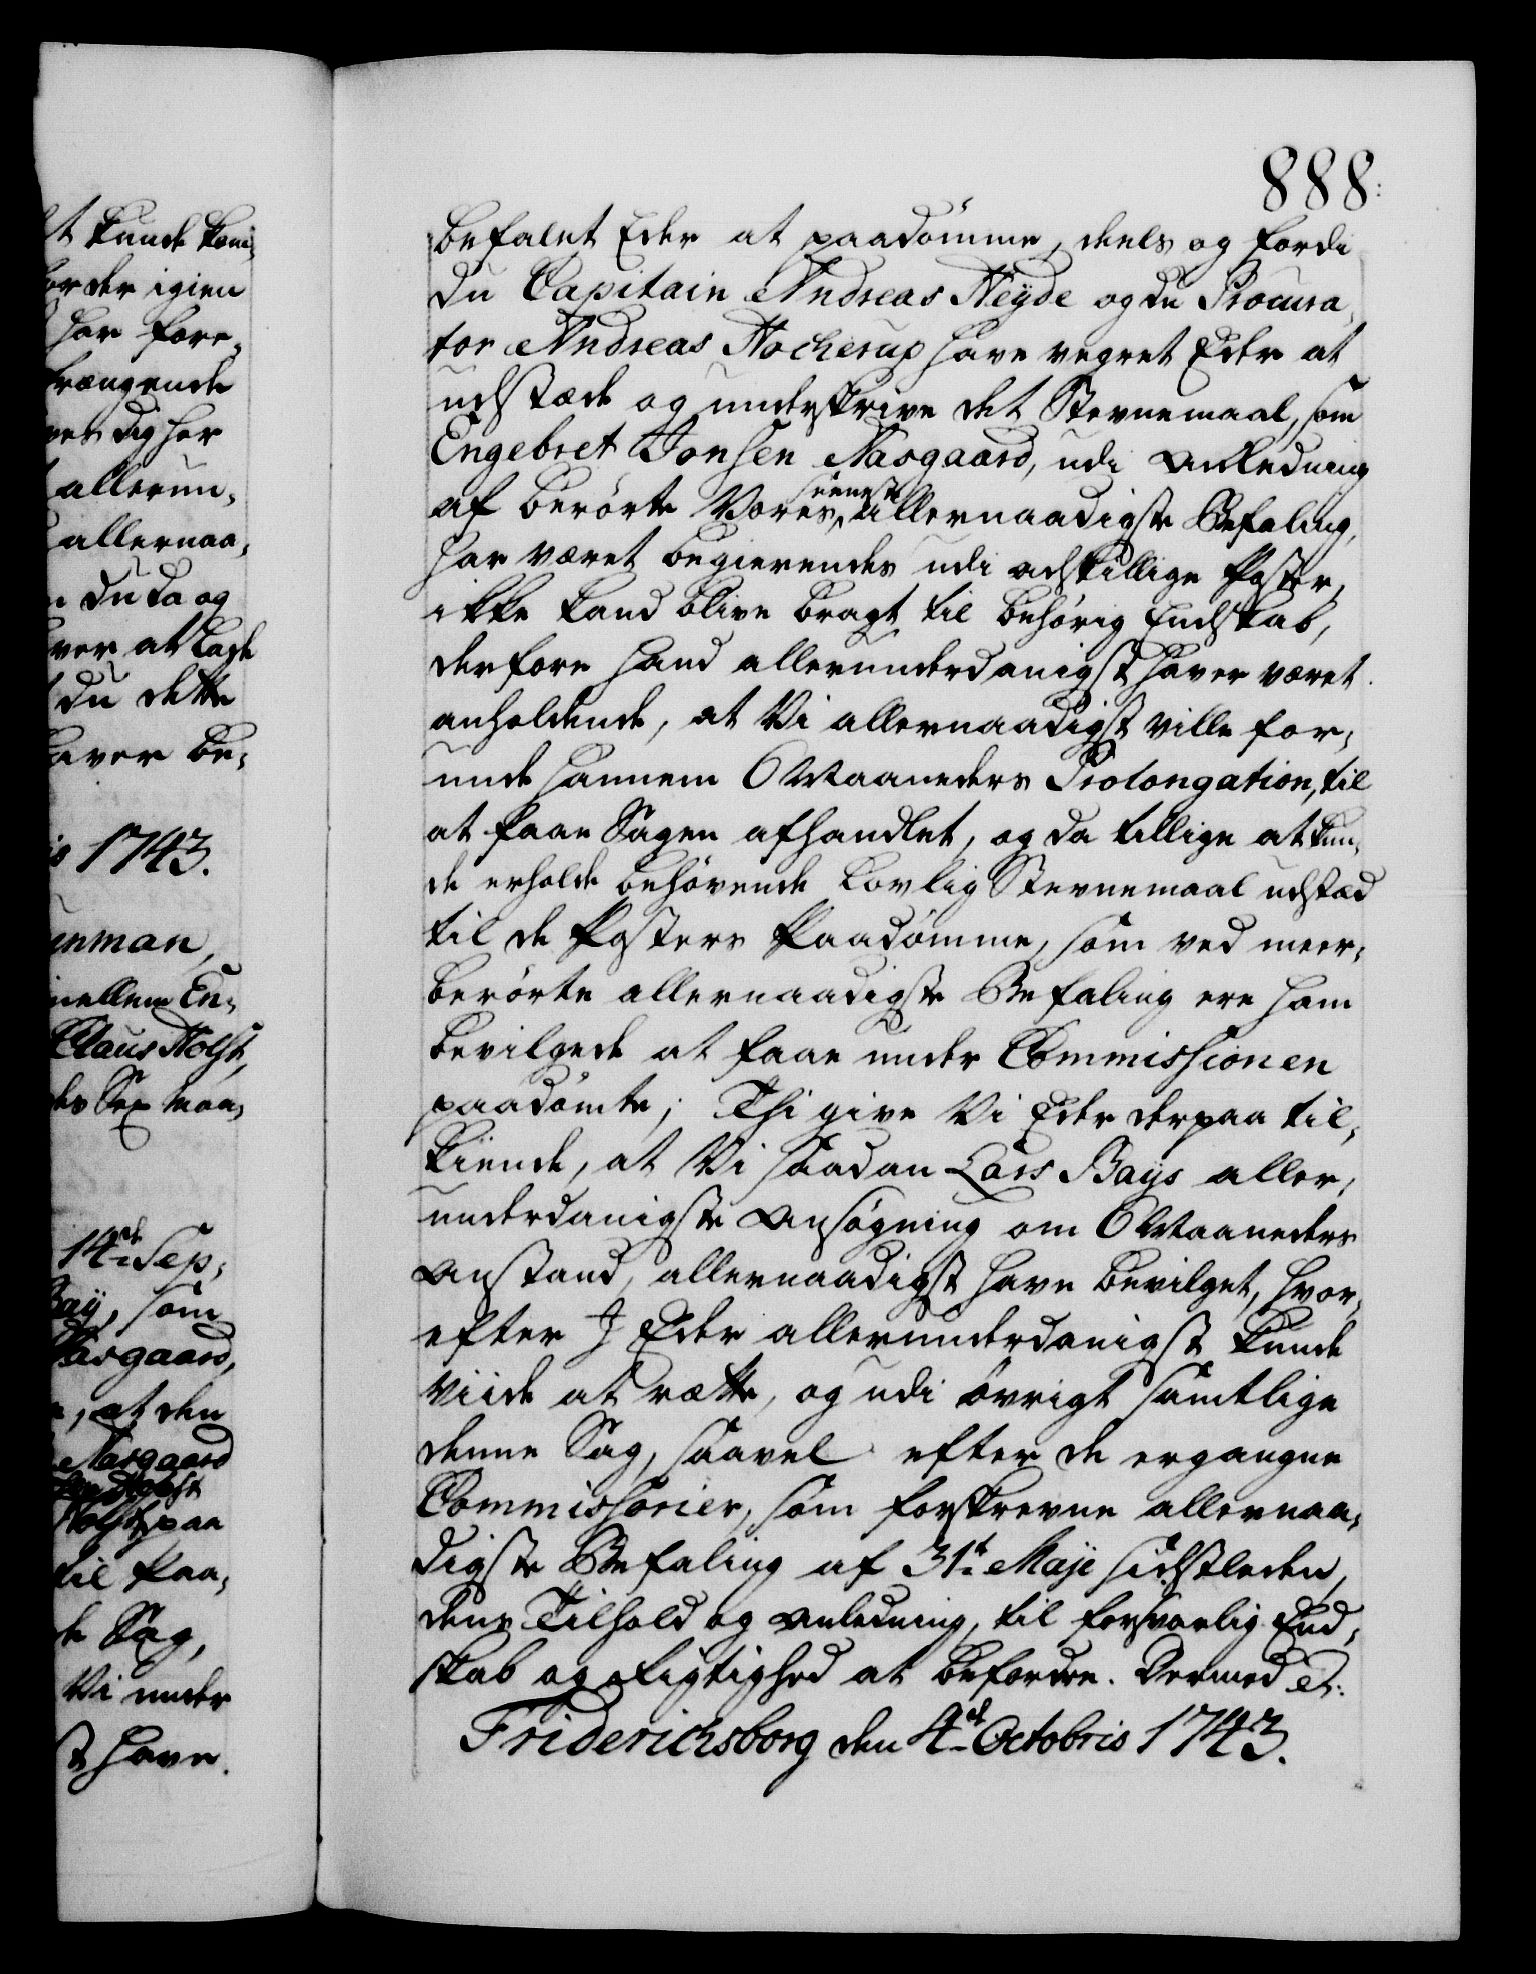 888.
befalet Eder at paadömme, deels og fordi
du Capitain Andreas Heyde og du Procura-
tor Andreas Hockerup have vegret Eder at
udstæde og underskrive det Stevnemaal, som
Engebret Jonsen Nasgaard, udi Anledning
af berörte Vores seeneste allernaadigste Befaling,
har været begierendes udi adskillige Poster,
ikke kand blive bragt til behörig Endskab,
derfore hand allerunderdanigst haver været
anholdende, at Vi allernaadigst ville for-
unde hannem 6 Maaneders Prolongation, til
at faae Sagen afhandlet, og da tillige at kun-
de erholde behövende Lovlig Stevnemaal udstæd
til de Posters Paadömme, som ved meer-
berörte allernaadigste Befaling ere ham
bevilgede at faae under Commissionen
paadömte; Thi give Vi Eder derpaa til-
kiende, at Vi saadan Lars Bays aller-
underdanigste Ansögning om 6 Maaneders
Anstand, allernaadigst have bevilget, hvor-
efter I Eder allerunderdanigst kunde
viide at rætte, og udi övrigt samtlige
denne Sag, saavel efter de ergangne
Commissorier, som forskrevne allernaa-
digste Befaling af 31te Maji sidstleden,
dens Tilhold og Anledning, til forsvarlig End-
skab og Rigtighed at befordre. Dermed etc:
Friderichsborg den 4de Octobris 1743.
t kunde kom-
order igien
har fore-
trængende
ver dig her
allerun-
allernaa-
du da og
ver at lade
du dette
haver be-
is 1743.
unman,
imellem En-
Claus Holst,
des Sex Maa-
14de Sep-
Bay, som
Nasgaard,
, at den
Nasgaard
Holst paa
til Paa-
de Sag,
Vi under
st have